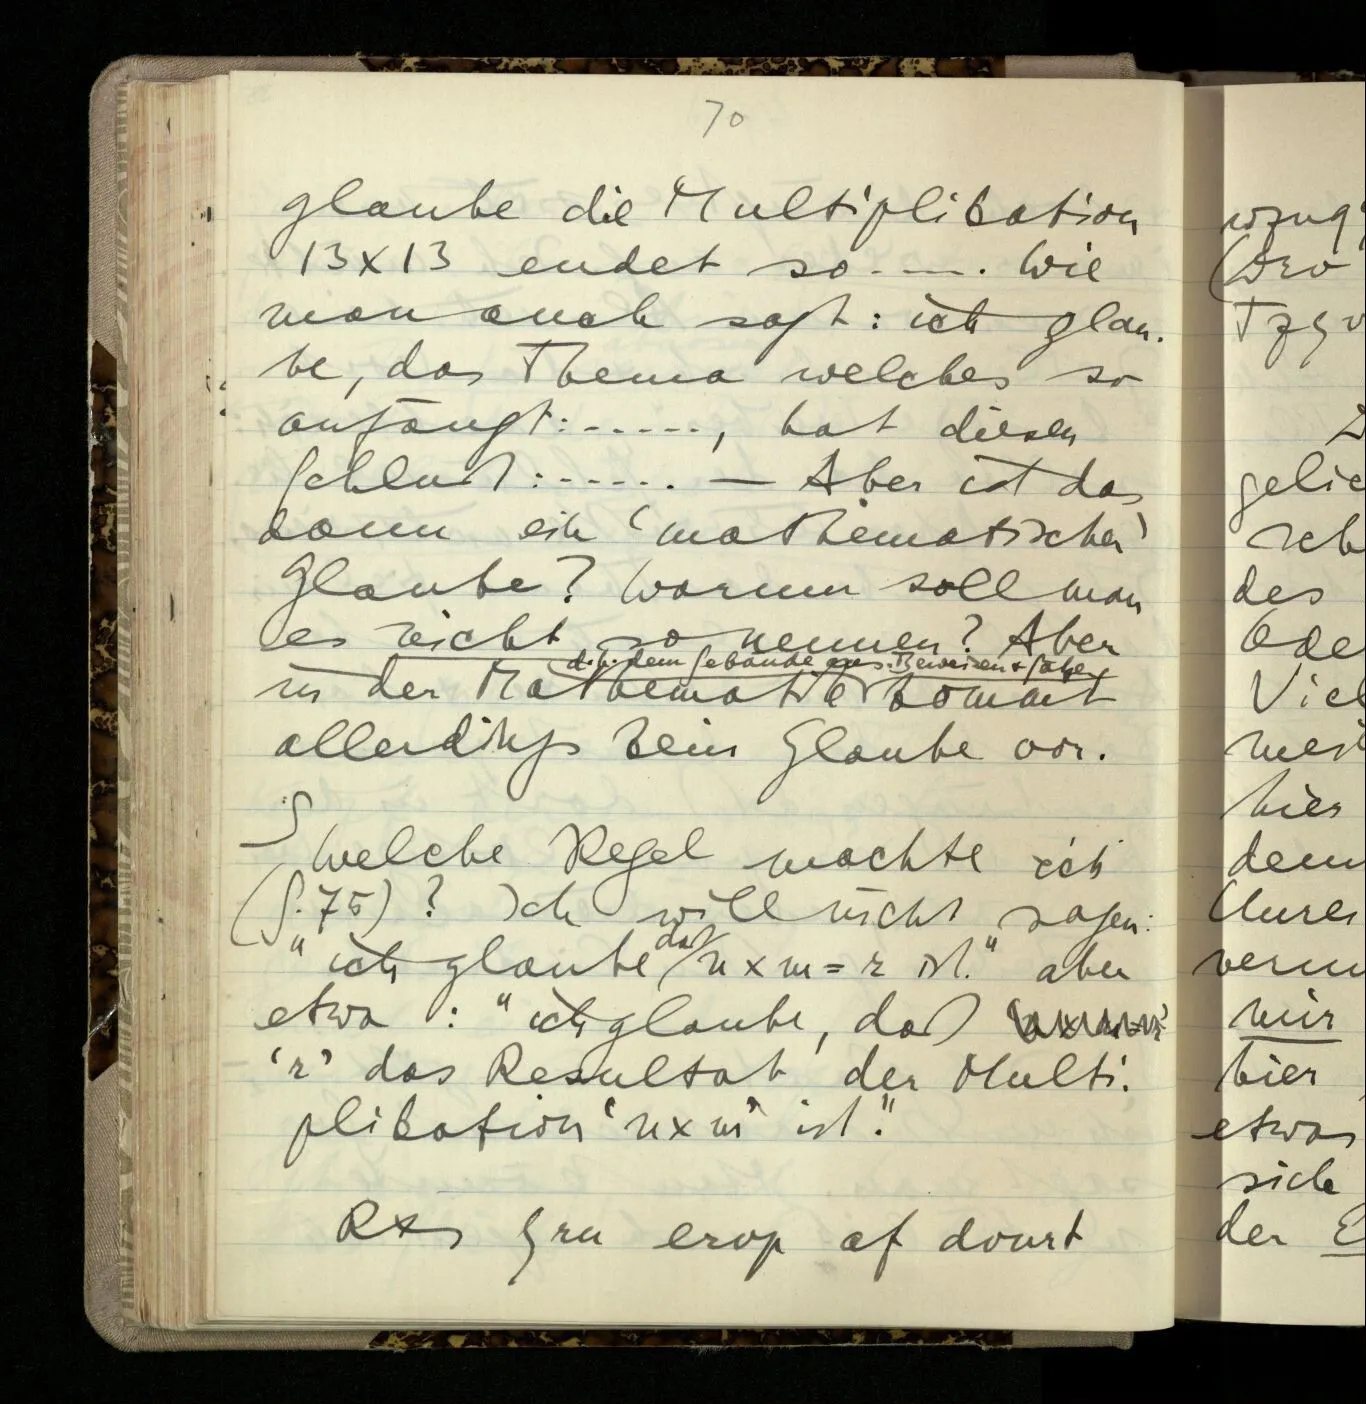 70
glaube die Multiplikation
13x13 endet so - — - . Wie
man auch sagt: ich glau-
be, das Thema welches so
anfängt: - - - - -, hat diesen
Schluß: - - - - - . — Aber ist das
dann ein ‘mathematischer’
Glaube? Warum soll man
es nicht so nennen? Aber
d.h. dem Gebäude aus Beweisen &
in der Mathematik kommt
allerdings kein Glaube vor.
S
Welche Regel machte ich
(S.75)? Ich will nicht sagen:
"ich glaube daß n x m = r ist." aber
etwa : "ich glaube, daß
‘r’ das Resultat der Multi-
plikation ‘n x m’ ist."
Rxs gru erop af dourt
wzug
(Wrv
Tzgv
D
gelie
sch
des
Ode
Viel
meh
hier
dem
verm
mir
hier
etwas
sich
der E